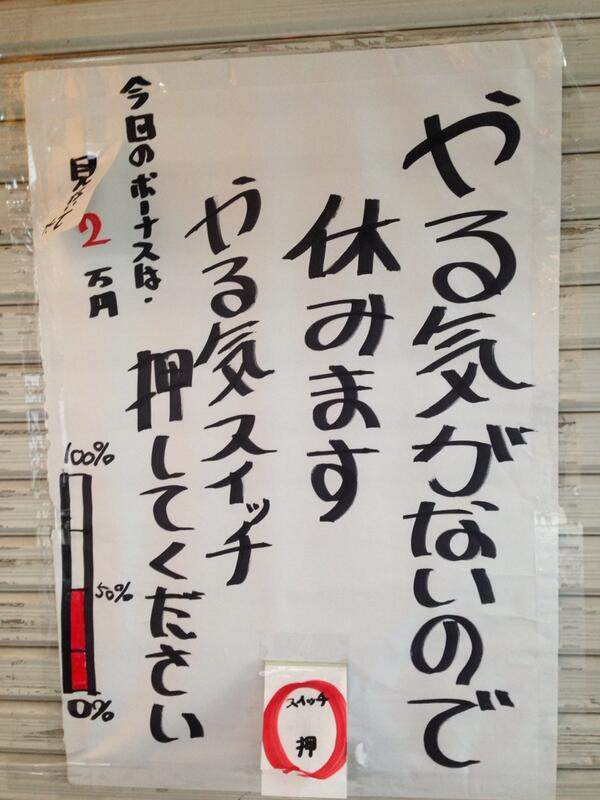 やる気がないので
休みます
やる気スイッチ
押してください
今日のボーナスは・
2万円
100%
50%
0%
スイッチ
押